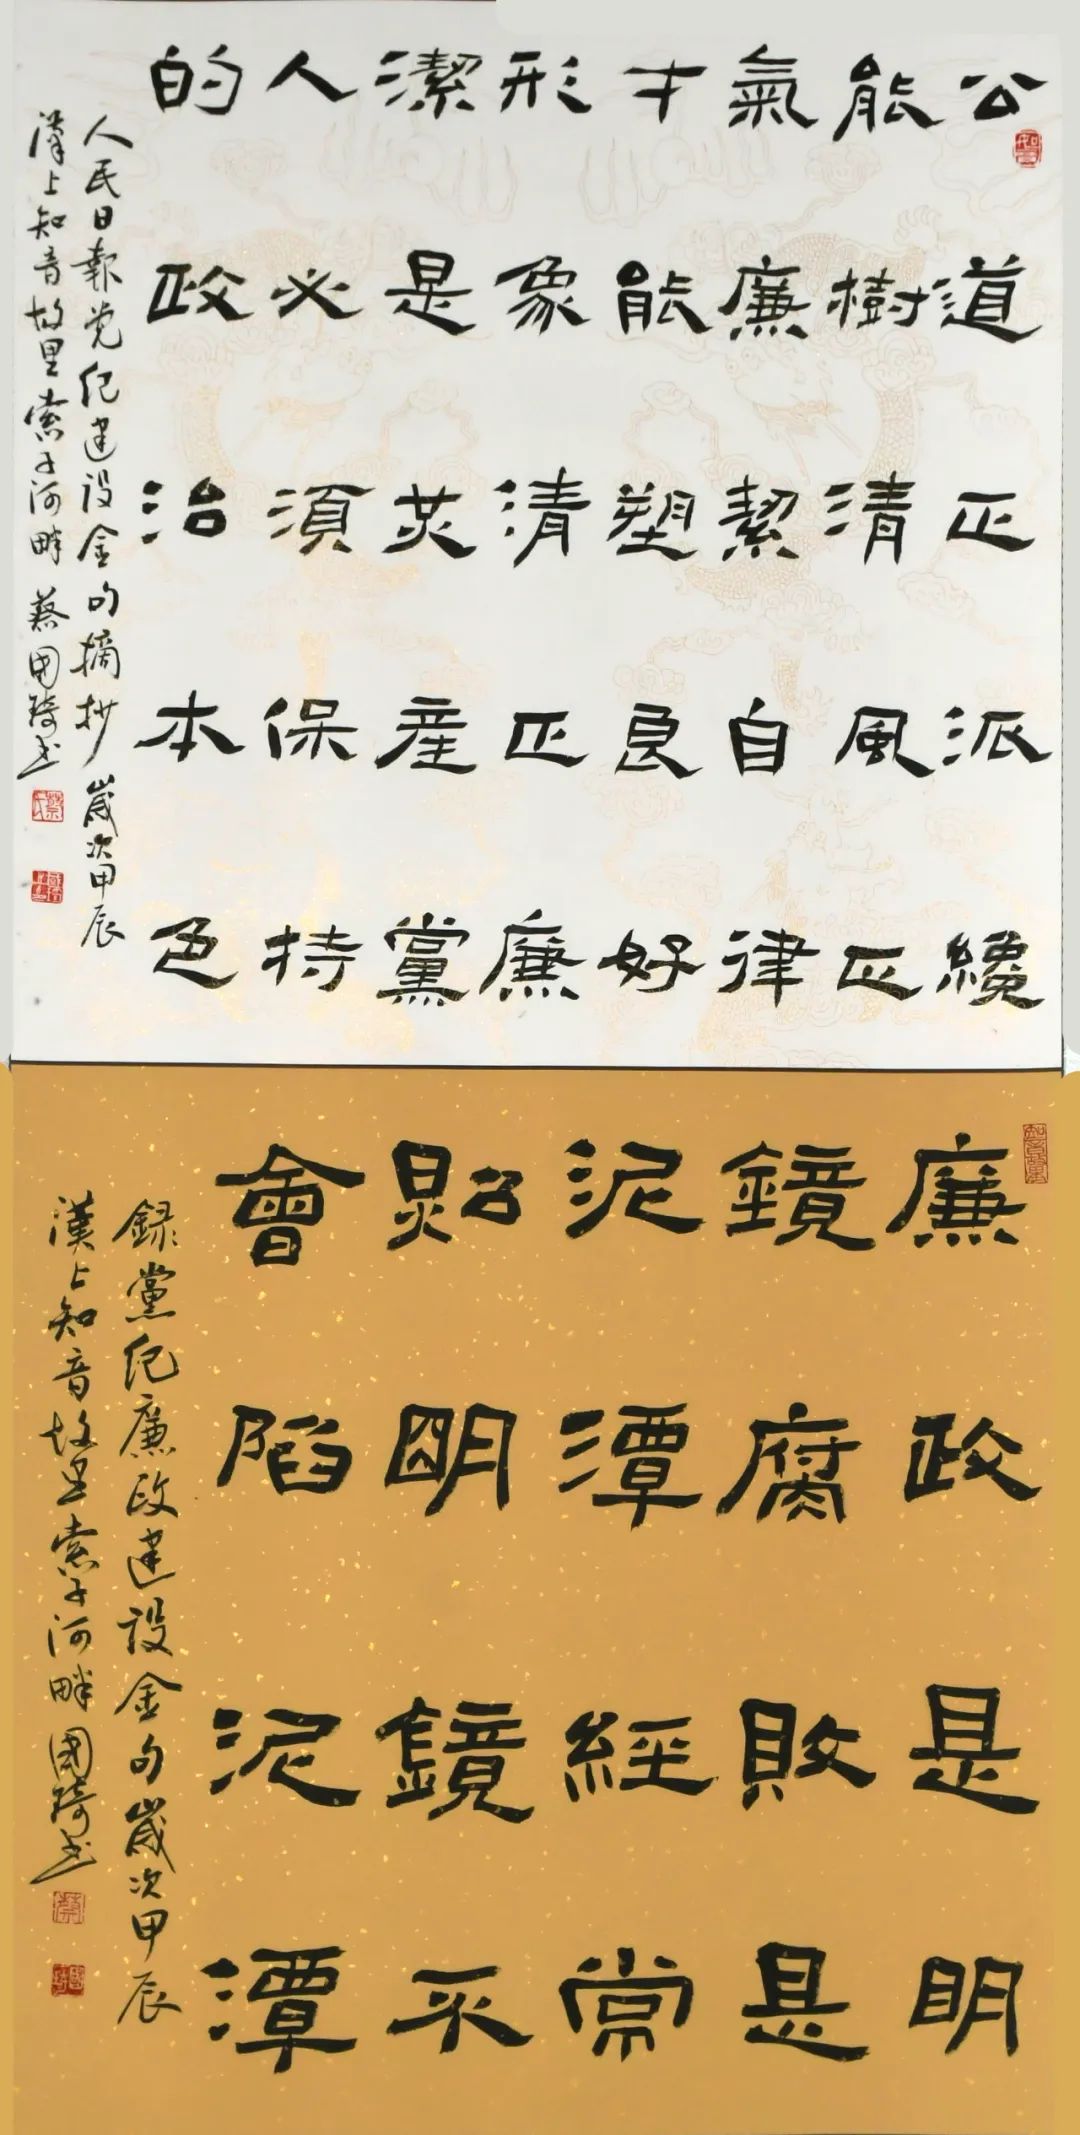 公道正派纔
能樹清風正
氣廉絜自律
才能塑良好
形象清正廉
潔是共産黨
人必須保持
的政治本色
人民日報党纪建设金句摘抄 歲次甲辰
漢上知音故里索子河畔 蔡國琦书
廉政是明
鏡腐敗是
泥潭經常
照明鏡不
會陷泥潭
録黨纪廉政建设金句歲次甲辰
漢上知音故里索子河畔國琦书